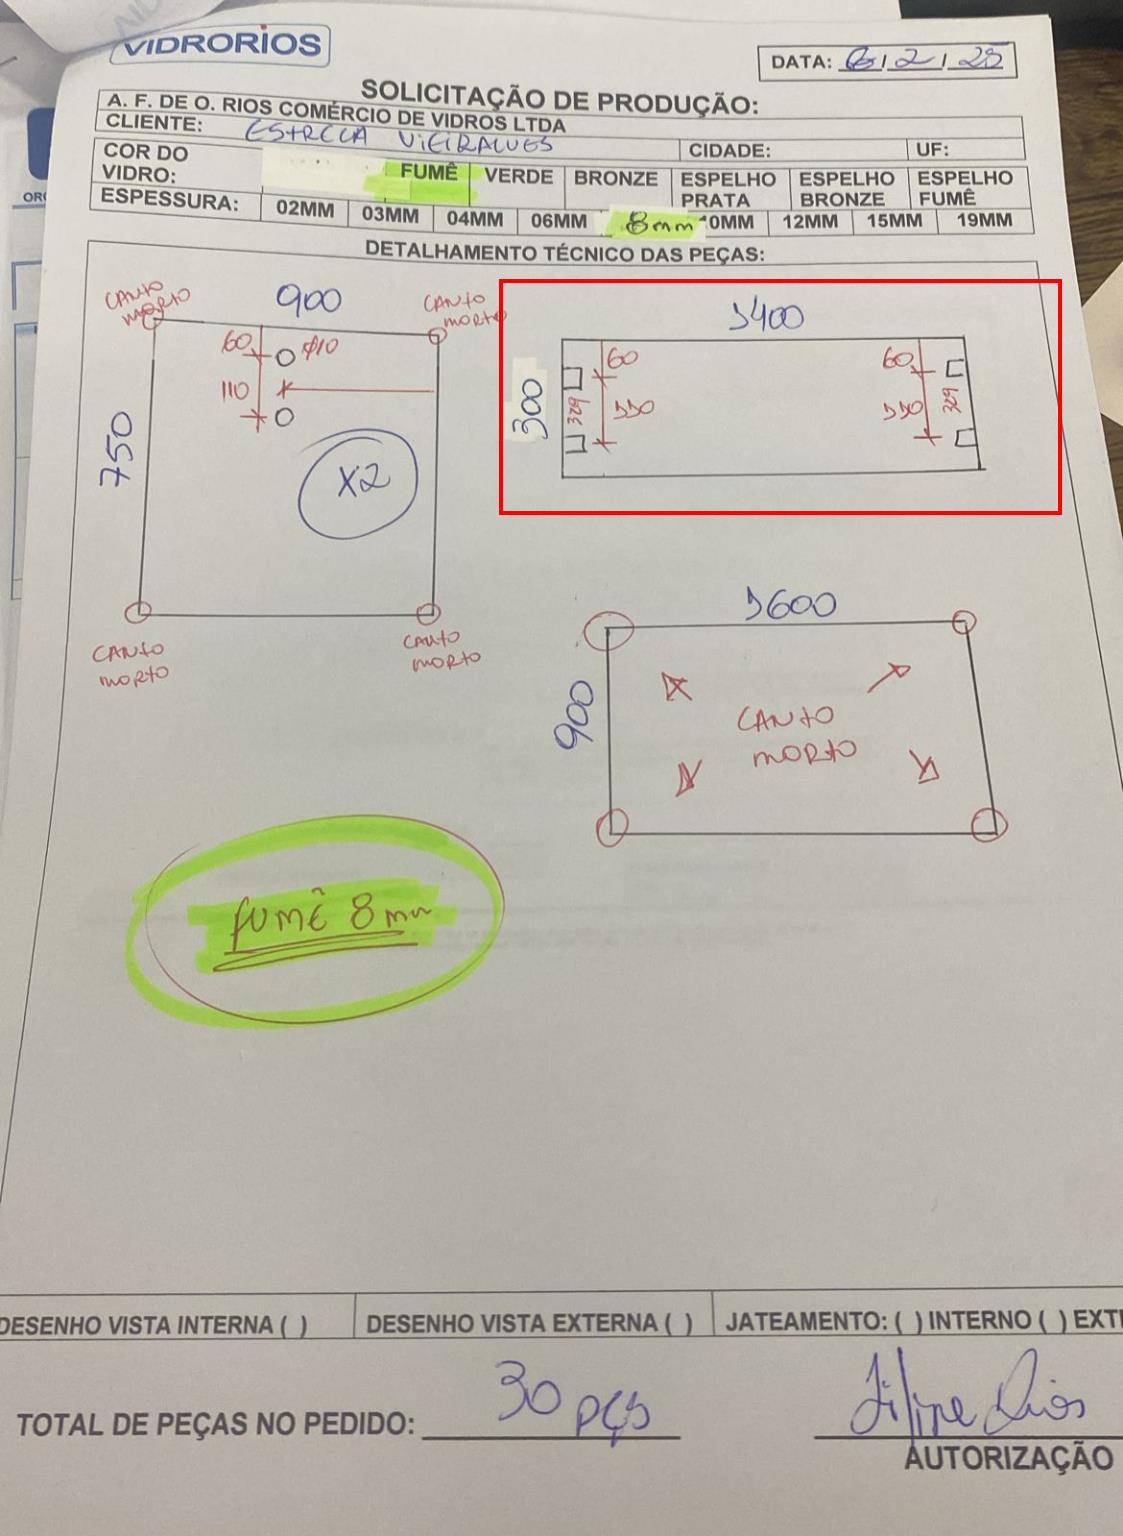 VIDRORIOS
DATA: 6/2/25
SOLICITAÇÃO DE PRODUÇÃO:
A. F. DE O. RIOS COMÉRCIO DE VIDROS LTDA
CLIENTE: ESTRELA VIEIRALVES CIDADE: UF:
COR DO VIDRO: FUMÊ VERDE BRONZE ESPELHO PRATA ESPELHO BRONZE ESPELHO FUMÊ
ESPESSURA: 02MM 03MM 04MM 06MM 8mm 10MM 12MM 15MM 19MM
DETALHAMENTO TÉCNICO DAS PEÇAS:
CANTO MORTO
900
CANTO MORTO
60
Ø10
110
750
X2
CANTO MORTO
CANTO MORTO
1400
300
60
110
329
60
110
329
1600
900
CANTO
MORTO
fumê 8mm
DESENHO VISTA INTERNA ( ) DESENHO VISTA EXTERNA ( ) JATEAMENTO: ( ) INTERNO ( ) EXT
TOTAL DE PEÇAS NO PEDIDO: 30 pçs
Filipe Rios
AUTORIZAÇÃO